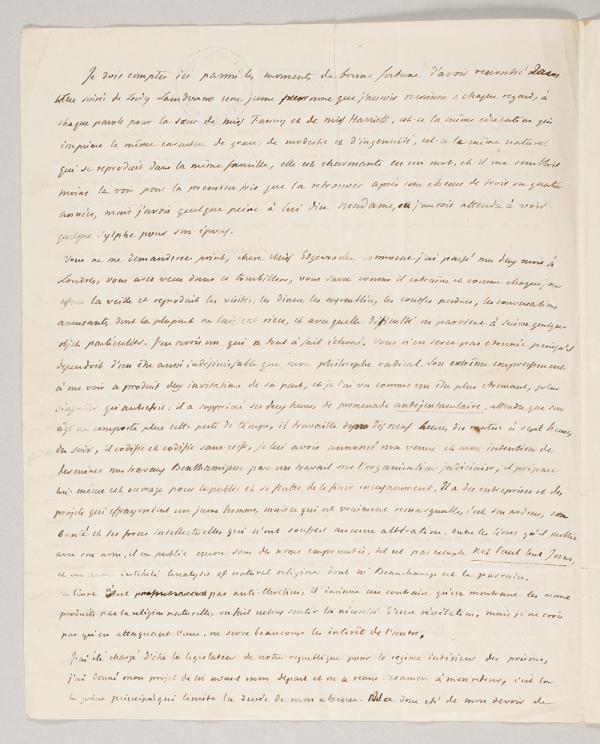 Je dois compter ici parmi les moments de bonne fortune d'avoir rencontré dans
une soirée de Lady Lansdowne une jeune personne que j'aurois reconnue à chaque regard, à
chaque parole pour la sœur de miss Fanny et de miss Harriett, est-ce la même éducation qui
imprime le même caractère de grace, de modestie et d'ingenuité, est-ce la même naturel
qui se reproduit dans la même famille, elle est charmante en un mot, et il me sembloit
moins la voir pour la premiere fois que la retrouver après une absence de trois ou quatre
années, mais j'avois quelque peine à lui dire Madame, j'aurois attendu à voir
quelque Sylphe pour son époux.
Vous ne me demanderez point, chere Miss Edgeworth comment j'ai passé mes deux mois à
Londres, vous avez vecu dans ce tourbillon, vous savez comme il entraîne et comme chaque jour
efface la veille et reproduit les visites, les diners, les assemblées, les courses perdues, les conversations
amusantes dont la plupart ne laissent rien, et avec quelle difficulté on parvient à suivre quelque
objet particulier. J'en avois un qui a tout à fait échoué. Vous n'en serez pas etonnée puisqu'il
dependoit d'un être aussi indéfinissable que mon philosophe radical. Son extrême empressement
à me voir a produit deux invitations de sa part, et je l'ai vu comme un être plus étonnant, plus
singulier qu'autrefois: il a supprimé ses deux heures de promenade antéjentaculaire, attendu que son
âge ne comporte plus cette perte de temps, il travaille dès neuf heures du matin à sept heures
du soir, il codifie et codifie sans cesse, je lui avois annoncé ma venue et mon intention de
terminer mes travaux Benthamiques par un travail sur l'organisation judiciaire, il prépare
lui même cet ouvrage pour le public et se flatte de le finir incessamment. Il a des entreprises et des
projets qui effrayeroient un jeune homme, mais ce qui est vraiment remarquable, c'est son ardeur, son
santé et ses forces intellectuelles qui n'ont souffert aucune altération. Outre les livres qu'il publie
avec son nom, il en publie encore sous des noms empruntés, tel est par exemple Not Paul but Jesus,
et un autre intitulé Analysis of natural religion dont Mr Beauchamp est le parrain.
Ce livre n'est pas anti-Chretien, il insinue au contraire qu'en montrant les maux
produits par la religion naturelle, on fait mieux sentir la nécessité d'une révélation, mais je ne crois
pas qu'en attaquant l'une, on serve beaucoup les interêts de l'autre.
J'ai été chargé d'être le legislateur de notre republique pour le regime intérieur des prisons,
j'ai donné mon projet de loi avant mon depart et on a remis l'examen à mon retour, c'est là
la peine principale qui limite la durée de mon absence. Il a donc été de mon devoir de